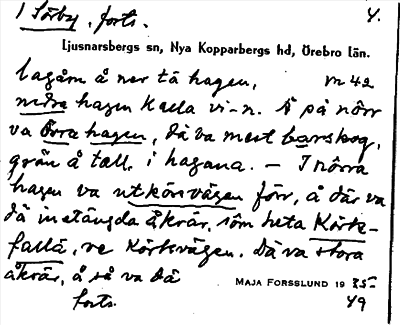 1 Sörby, forts. 4.
Ljusnarsbergs sn, Nya Kopparbergs hd, Örebro län.
lagåm å ner tå hagen, M 42
nedra hagen kalla vi-n. Å på nörr
va övra hagen, dä va mest barskog,
grån å tall i hagana. — I nörra
hagen va utkörsvägen förr, å där va
dä instängda åkrär, söm heta Körk-
fallä, ve Körkvägen. Dä va stora
åkrär, å så va dä
MAJA FORSSLUND 19 35-
forts. 49